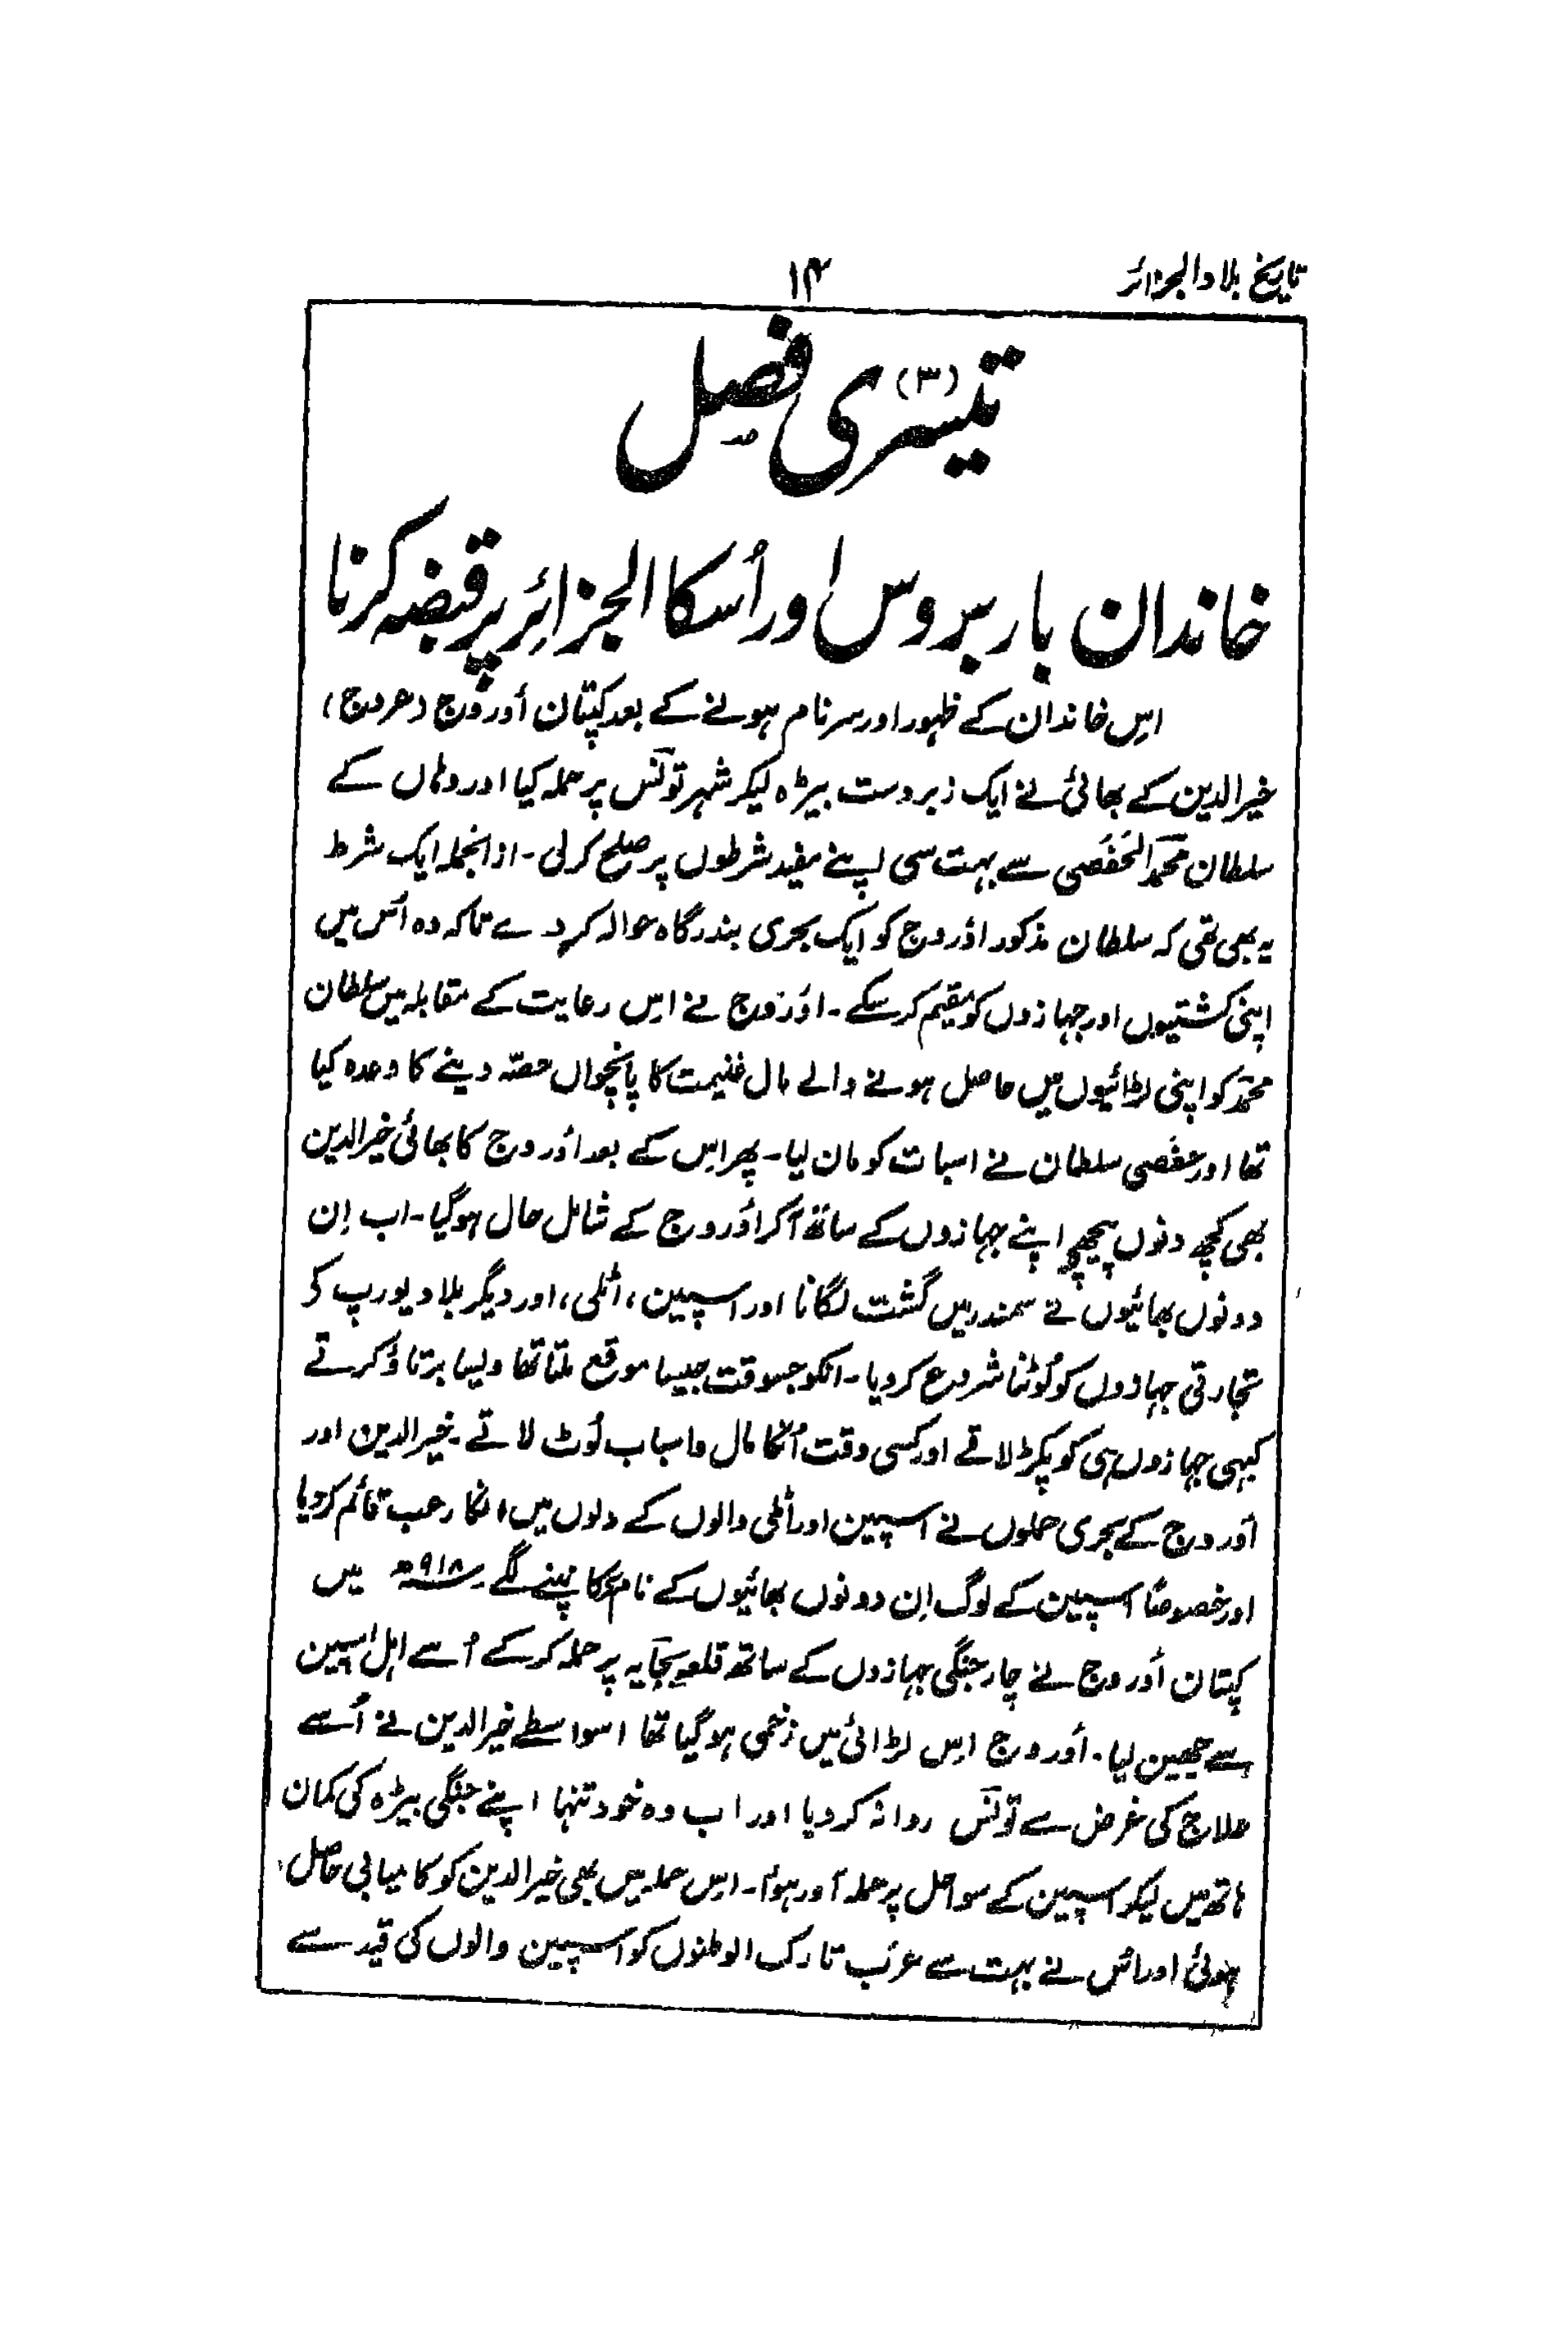 تاریخ بلاد الجزائر
۱۴
تیسری (۳) فصل
خاندان باربروس اور اُسکا الجزائر پر قبضہ کرنا
اس خاندان کے ظہور اور سرنام ہونے کے بعد کپتان اُوروج (عروج)
خیرالدین کے بھائی نے ایک زبردست بیڑہ لیکر شہر تونس پر حملہ کیا اور وہاں کے
سلطان محمد الحفصی سے بہت سی اپنے مفید شرطوں پر صلح کر لی۔ از انجملہ ایک شرط
یہ بھی تھی کہ سلطان مذکور اُوروج کو ایک بحری بندرگاہ حوالہ کر دے تاکہ وہ اُس میں
اپنی کشتیوں اور جہازوں کو مقیم کر سکے۔ اُوروج نے اس رعایت کے مقابلہ میں سلطان
محمد کو اپنی لڑائیوں میں حاصل ہونے والے مال غنیمت کا پانچواں حصّہ دینے کا وعدہ کیا
تھا اور حفصی سلطان نے اسبات کو مان لیا۔ پھر اس کے بعد اُوروج کا بھائی خیرالدین
بھی کچھ دنوں پیچھے اپنے جہازوں کے ساتھ آکر اُوروج کے شامل حال ہوگیا۔ اب اِن
دونوں بھائیوں نے سمندر میں گشت لگانا اور اسپین، اٹلی، اور دیگر بلاد یورپ کی
تجارتی جہازوں کو لُوٹنا شروع کردیا۔ انکو جسوقت جیسا موقع ملتا تھا ویسا برتاؤ کرتے
کبہی جہازوں ہی کو پکڑ لاتے اور کسی وقت اُنکا مال و اسباب لُوٹ لاتے۔ خیرالدین اور
اُوروج کے بحری حملوں نے اسپین اور اٹلی والوں کے دلوں میں انکا رعب قائم کردیا
اور خصوصًا اسپین کے لوگ اِن دونوں بھائیوں کے نام سے کانپنے لگے۔ ۹۱۸ھ میں
کپتان اُوروج نے چار جنگی جہازوں کے ساتھ قلعہ بجایہ پر حملہ کرکے اُسے اہل اسپین
سے چھین لیا۔ اُوروج اس لڑائی میں زخمی ہوگیا تھا اسواسطے خیرالدین نے اُسے
علاج کی غرض سے تونس روانہ کردیا اور اب وہ خود تنہا اپنے جنگی بیڑہ کی کمان
ہاتھ میں لیکر اسپین کے سواحل پر حملہ آور ہوا۔ اس حملہ میں بھی خیرالدین کو کامیابی حاصل
ہوئی اور اُس نے بہت سے عرب تارک الوطنوں کو اسپین والوں کی قید سے